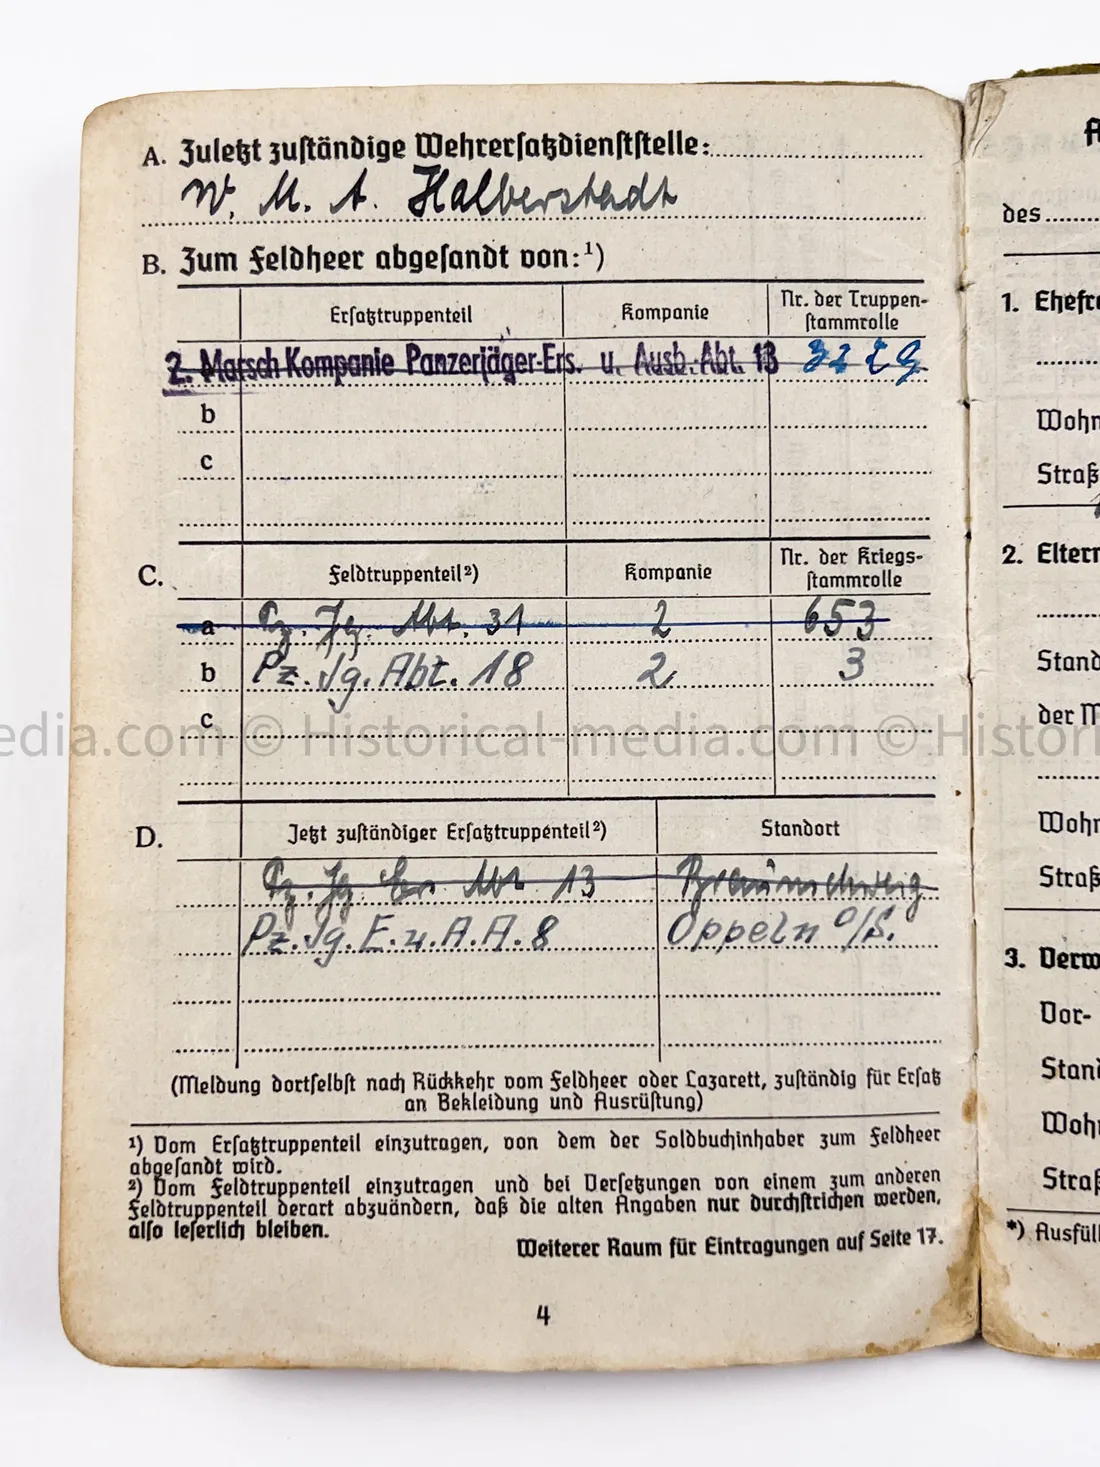 A. Zuletzt zuständige Wehrersatzdienststelle:
W. M. A. Halberstadt
B. Zum Feldheer abgesandt von:¹)
Ersatztruppenteil Kompanie Nr. der Truppen-
stammrolle
2. Marsch Kompanie Panzerjäger-Ers. u. Ausb.-Abt. 13
b
c
C. Feldtruppenteil²) Kompanie Nr. der Kriegs-
stammrolle
a Pz. Jg. Abt. 31 2 653
b Pz. Jg. Abt. 18 2 3
c
edia.com © Historical-media.com © Histori
D. Jetzt zuständiger Ersatztruppenteil²) Standort
Pz. Jg. Ers. Abt 13 Braunschweig
Pz. Jg. E. u. A. A. 8 Oppeln O/S.
(Meldung dortselbst nach Rückkehr vom Feldheer oder Lazarett, zuständig für Ersatz
an Bekleidung und Ausrüstung)
¹) Vom Ersatztruppenteil einzutragen, von dem der Soldbuchinhaber zum Feldheer
abgesandt wird.
²) Vom Feldtruppenteil einzutragen und bei Versetzungen von einem zum anderen
Feldtruppenteil derart abzuändern, daß die alten Angaben nur durchstrichen werden,
also leserlich bleiben.
Weiterer Raum für Eintragungen auf Seite 17.
4
des
1. Ehefr
Wohn
Straß
2. Eltern
Stand
der M
Wohn
Straß
3. Verw
Vor-
Stand
Wohn
Straß
*) Ausfüll